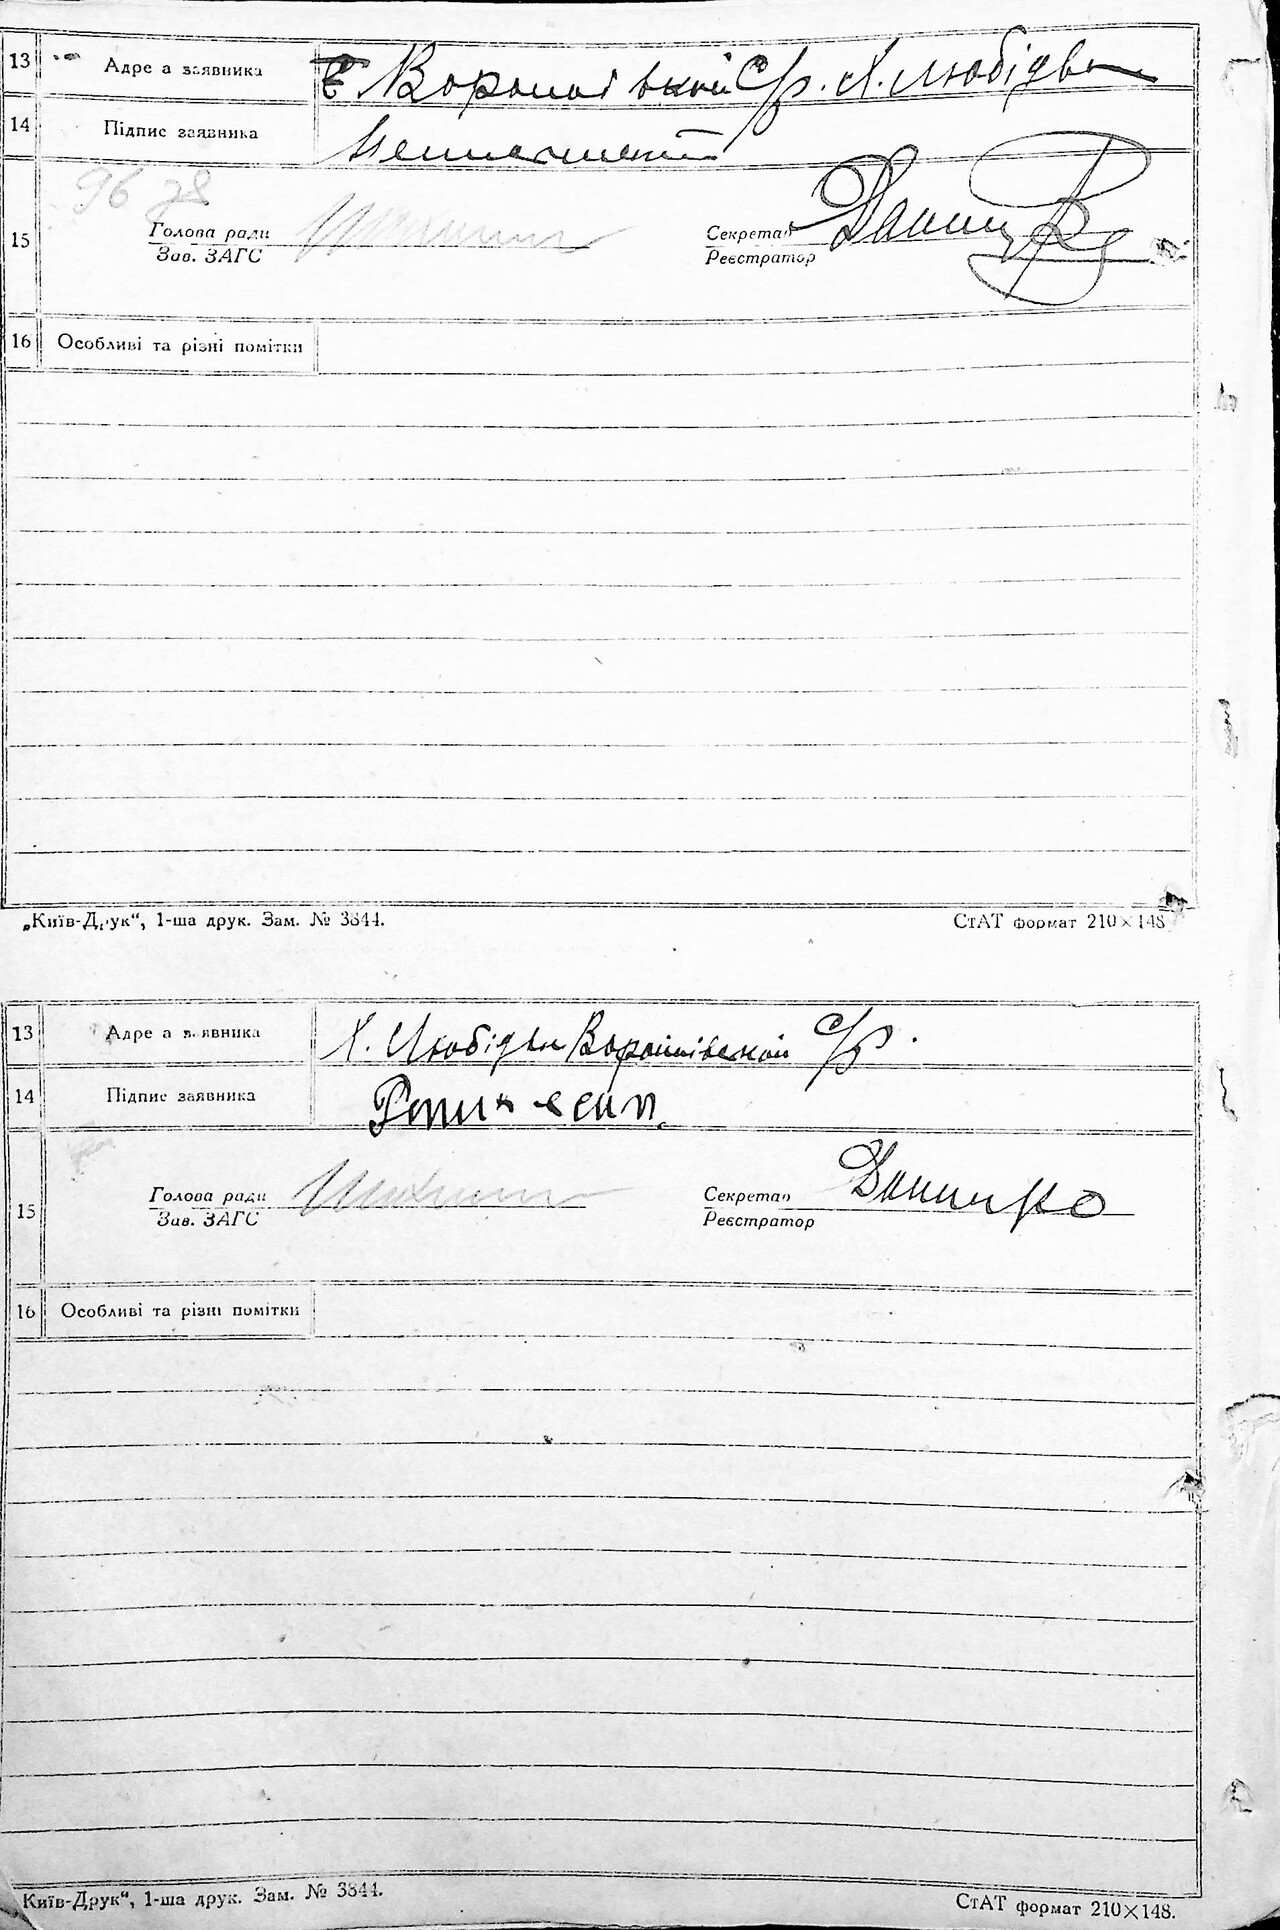 13 Адре а заявника С. Вороновской С/р. х. Любідва
14 Підпис заявника
96
15 Голова ради Секретар
Зав. ЗАГС Реєстратор
16 Особливі та різні помітки
„Київ-Друк“, 1-ша друк. Зам. № 3844. СтАТ формат 210×148
13 Адре а заявника х. Любідва С/р.
14 Підпис заявника
15 Голова ради Секретар Данилко
Зав. ЗАГС Реєстратор
16 Особливі та різні помітки
Київ-Друк“, 1-ша друк. Зам. № 3844. СтАТ формат 210×148.